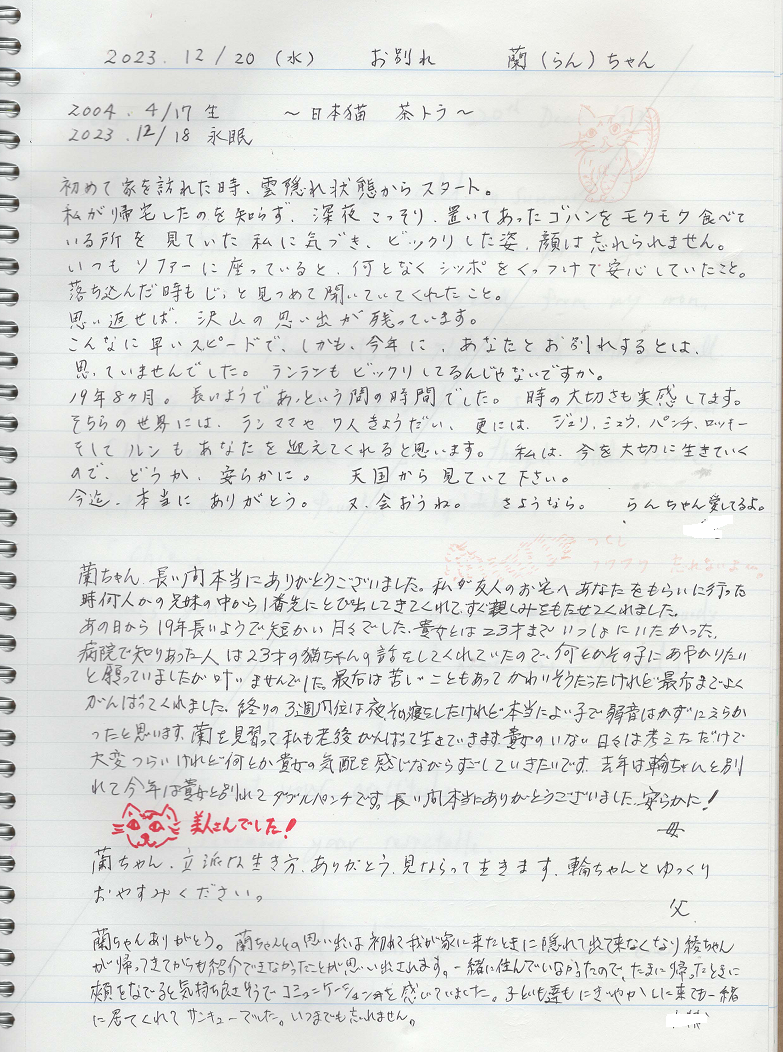 2023. 12/20 (水) お別れ 蘭(らん)ちゃん
2004. 4/17 生 ～日本猫 茶トラ～
2023. 12/18 永眠
初めて家を訪れた時、雲隠れ状態からスタート。
私が帰宅したのを知らず、深夜こっそり、置いてあったゴハンをモクモク食べて
いる所を見ていた私に気づき、ビックリした姿、顔は忘れられません。
いつもソファーに座っていると、何となくシッポをくっつけて安心していたこと。
落ち込んだ時もじっと見つめて聞いていてくれたこと。
思い返せば、沢山の思い出が残っています。
こんなに早いスピードで、しかも、今年に、あなたとお別れするとは、
思っていませんでした。ランランもビックリしてるんじゃないですか。
19年8ヶ月。長いようであっという間の時間でした。時の大切さも実感してます。
そちらの世界には、ランママや7人きょうだい、更には、ジュリ、ミュウ、パンチ、ロッキー
そしてルンもあなたを迎えてくれると思います。私は、今を大切に生きていく
ので、どうか、安らかに。天国から見ていて下さい。
今迄、本当にありがとう。又、会おうね。さようなら。らんちゃん愛してるよ。
蘭ちゃん、長い間本当にありがとうございました。私が友人のお宅へあなたをもらいに行った
時何人かの兄妹の中から1番先にとび出してきてくれて、すぐ親しみをもたせてくれました。
あの日から19年長いようで短かい月々でした。貴女とは23才までいっしょにいたかった。
病院で知りあった人は23才の猫ちゃんの話をしてくれていたので、何とかその子にあやかりたい
と願っていましたが叶いませんでした。最后は苦しいこともあってかわいそうだったけれど最后までよく
がんばってくれました。終りの3週間位は夜、その寝をしたけれど本当によい子で弱音はかずにえらか
ったと思います。蘭を見習って私も老後がんばって生きていきます。貴女のいない日々は考えただけで
大変つらいけれど何とか貴女の気配を感じながらすごしていきたいです。去年は輪ちゃんと別
れて今年は貴女と別れてダブルパンチです。長い間本当にありがとうございました。安らかに!
美人さんでした!
母
蘭ちゃん、立派な生き方、ありがとう、見ならって生きます、輪ちゃんとゆっくり
おやすみください。
父
蘭ちゃんありがとう。蘭ちゃんとの思い出は初めて我が家に来たときに隠れて出て来なくなり綾ちゃん
が帰ってきてからも紹介できなかったことが思い出されます。一緒に住んでいなかったので、たまに帰ったときに
頬をなでると気持ち良さそうでコミュニケーションを感じていました。子ども達もにぎやかしに来ても一緒
に居てくれてサンキューでした。いつまでも忘れません。